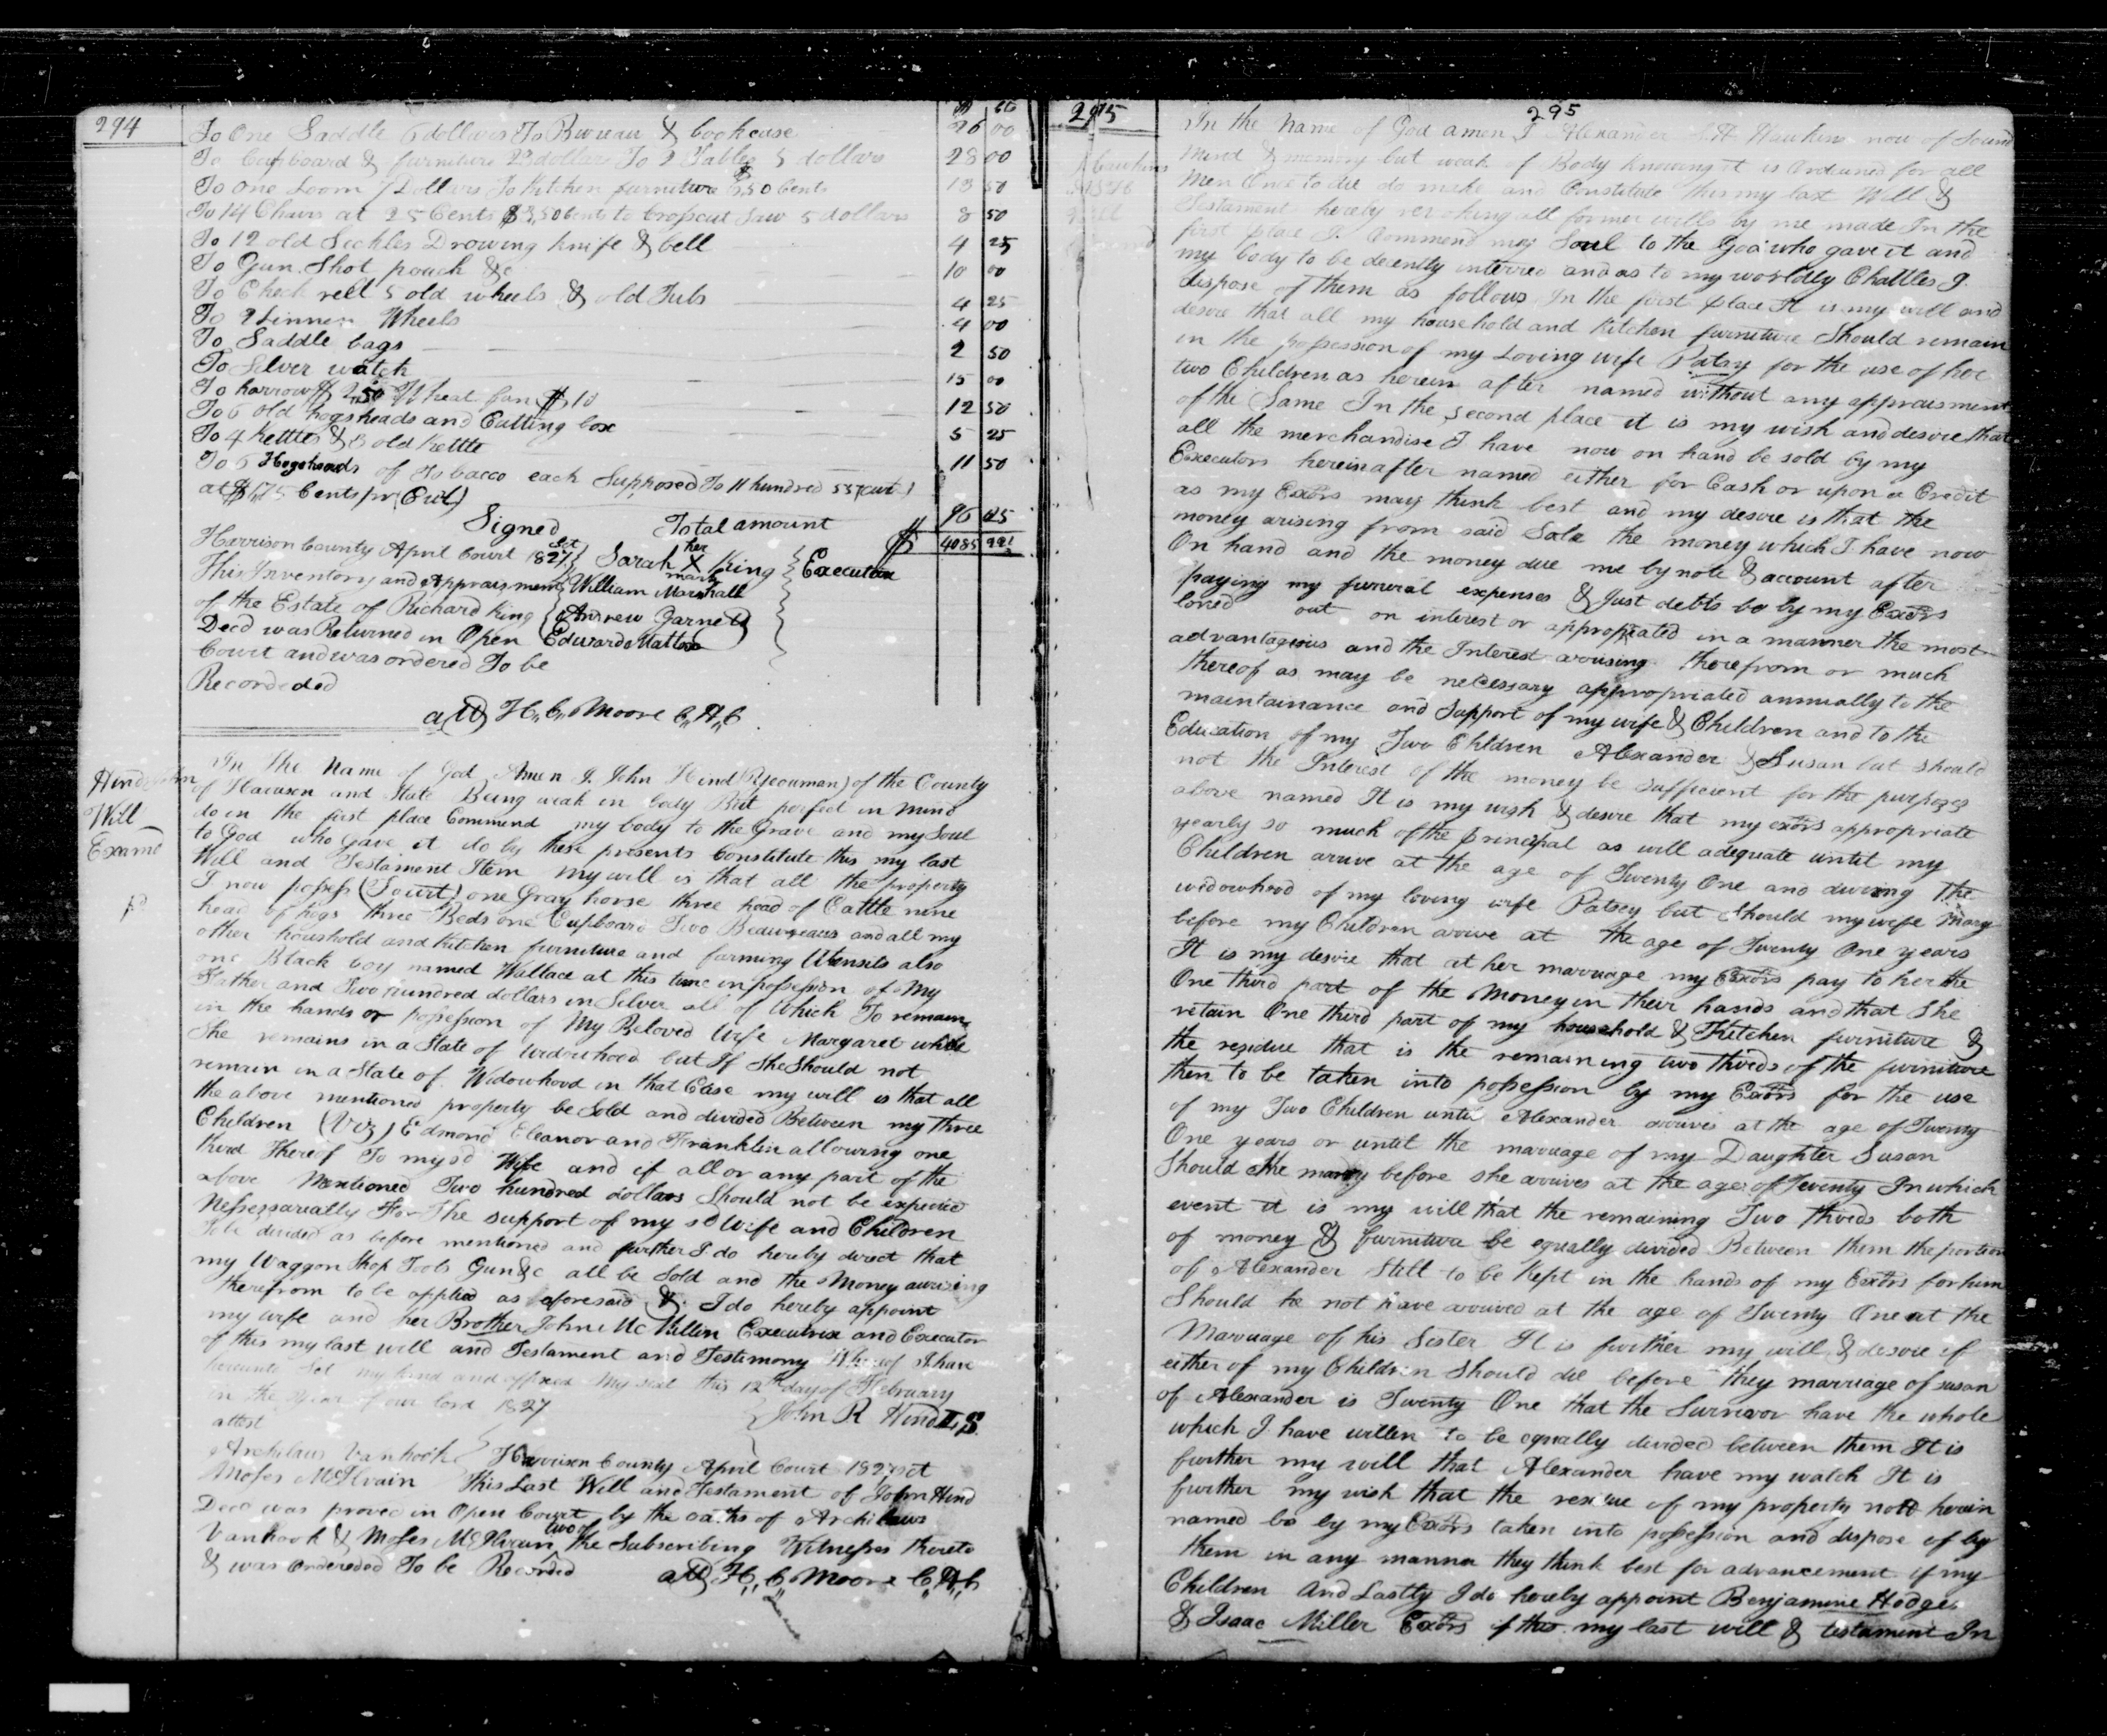 294
$ cts
To One Saddle 6 dollars To Bureau & bookcase 26 00
To Cupboard & furniture 23 dollars To 2 Tables 5 dollars 28 00
To One Loom 7 Dollars To Kitchen furniture $6,50 Cents 13 50
To 14 Chairs at 25 Cents $3,50 Cents to Cropscut Saw 5 dollars 8 50
To 12 old Sickles Drowing knife & bell 4 25
To Gun Shot pouch &c 10 00
To Check rell 5 old wheels & old Tubs 4 25
To 2 Linnen Wheels 4 00
To Saddle bags 2 50
To Silver watch 15 00
To harrow $2,50 Wheat fan $10 12 50
To 6 old hogsheads and Cutting box 5 25
To 4 Kettles & 3 old Kettle 11 50
To 6 Hogsheads of Tobacco each Supposed To 11 hundred
at $1,75 Cents pr (Cwt) 96 25
Signed Total amount $ 4085 99½
Harrison County April Court 1827 Sct Sarah her X mark King Executrix
This Inventory and Appraisment William Marshall
of the Estate of Richard King Andrew Garnett
Decd was Returned in Open Edward Mattox
Court and was ordered To be
Recordeded
att H,, C,, Moore C,,H,,C
Will
Examd
In the Name of God Amen I John Hind (Yeouman) of the County
of Harrison and State Being weak in body But perfect in mind
do in the first place Commend my body to the Grave and my Soul
to God who gave it do by these presents Constitute this my last
Will and Testament Item my will is that all the property
I now possess (Towit) one Gray horse three head of Cattle nine
head of hogs three Beds one Cupboard Two Beaureaus and all my
other houshold and Kitchen furniture and farming Utensils also
one Black boy named Wallace at this time in possession of My
Father and Two hundred dollars in Silver all of Which To remain
in the hands or possession of My Beloved Wife Margaret while
She remains in a State of Widowhood but If She Should not
remain in a State of Widowhood in that Case my will is that all
the above mentioned property be Sold and divided Between my three
Children (Viz) Edmond Eleanor and Franklin allowing one
third thereof To my sd Wife and if all or any part of the
above Mentioned Two hundred dollars Should not be expended
Nessessarially For The support of my sd Wife and Children
To be divided as before mentioned and further I do hereby direct that
my Waggon Shop Tools Gun &c all be Sold and the Money aurising
therefrom to be applied as aforesaid & I do hereby appoint
my wife and her Brother John Mc Millin Executrix and Executor
of this my last will and Testament and Testimony Whereof I have
hereunto Set my hand and affixed My seal this 12th day of February
in the year of our lord 1827
attest John R Hind L S
Archilaus Vanhook Harrison County April Court 1827 Sct
Moses McIlvain This Last Will and Testament of John Hind
Decd was proved in Open Court by the oaths of Archilaus
Vanhook & Moses McIlvain two of the Subscribing Witnesses thereto
& was Ordereded To be Recorded att H,, C,, Moore C,,H,,C
295
295
Hawkins
Will
In the Name of God amen I Alexander Hawkins now of Sound
Mind & memory but weak of Body Knowing it is Ordained for all
Men Once to die do make and Constitute this my last Will &
Testament hereby revoking all former wills by me made In the
first place I Commend my Soul to the God who gave it and
my body to be decently interred and as to my worldly Chattles I
dispose of them as follows In the first place It is my will and
desire that all my household and Kitchen furniture Should remain
in the possession of my Loving wife Patsy for the use of her
two Children as herein after named without any appraisment
of the Same In the Second place it is my wish and desire that
all the merchandise I have now on hand be sold by my
Executors hereinafter named either for Cash or upon a Credit
as my Exors may think best and my desire is that the
money arising from said Sale the money which I have now
On hand and the money due me by note & account after
paying my funeral expenses & Just debts be by my Exors
loned out on interest or appropriated in a manner the most
advantagious and the Interest arousing therefrom or much
thereof as may be necessary appropriated annually to the
maintainance and Support of my wife & Children and to the
Education of my Two Children Alexander & Susan but Should
not the Interest of the money be sufficient for the purposes
above named It is my wish & desire that my exors appropriate
yearly so much of the principal as will adequate until my
Children arive at the age of Twenty One and during The
widowhood of my loving wife Patsey but Should my wife Marry
before my Children arive at the age of Twenty One years
It is my desire that at her marriage my Exors pay to her the
One third part of the Money in their hands and that She
retain One third part of my household & Kitchen furniture &
the residue that is the remaining two thirds of the furniture
then to be taken into possession by my Exors for the use
of my Two Children until Alexander arrives at the age of Twenty
One years or until the marriage of my Daughter Susan
Should She marry before she arrives at the age of Twenty In which
event it is my will that the remaining Two thirds both
of money & furniture be equally divided Between them the portion
of Alexander Still to be Kept in the hands of my Exors for him
Should he not have arrived at the age of Twenty One at the
Marriage of his Sister It is further my will & desire if
either of my Children Should die before they marriage of susan
of Alexander is Twenty One that the Survivor have the whole
which I have willen to be equally divided between them It is
further my will that Alexander have my watch It is
further my wish that the residue of my property note herein
named be by my Exors taken into possession and dispose of by
them in any manner they think best for advancement of my
Children And Lastly I do hereby appoint Benjamine Hodges
& Isaac Miller Exors of this my last will & testament In